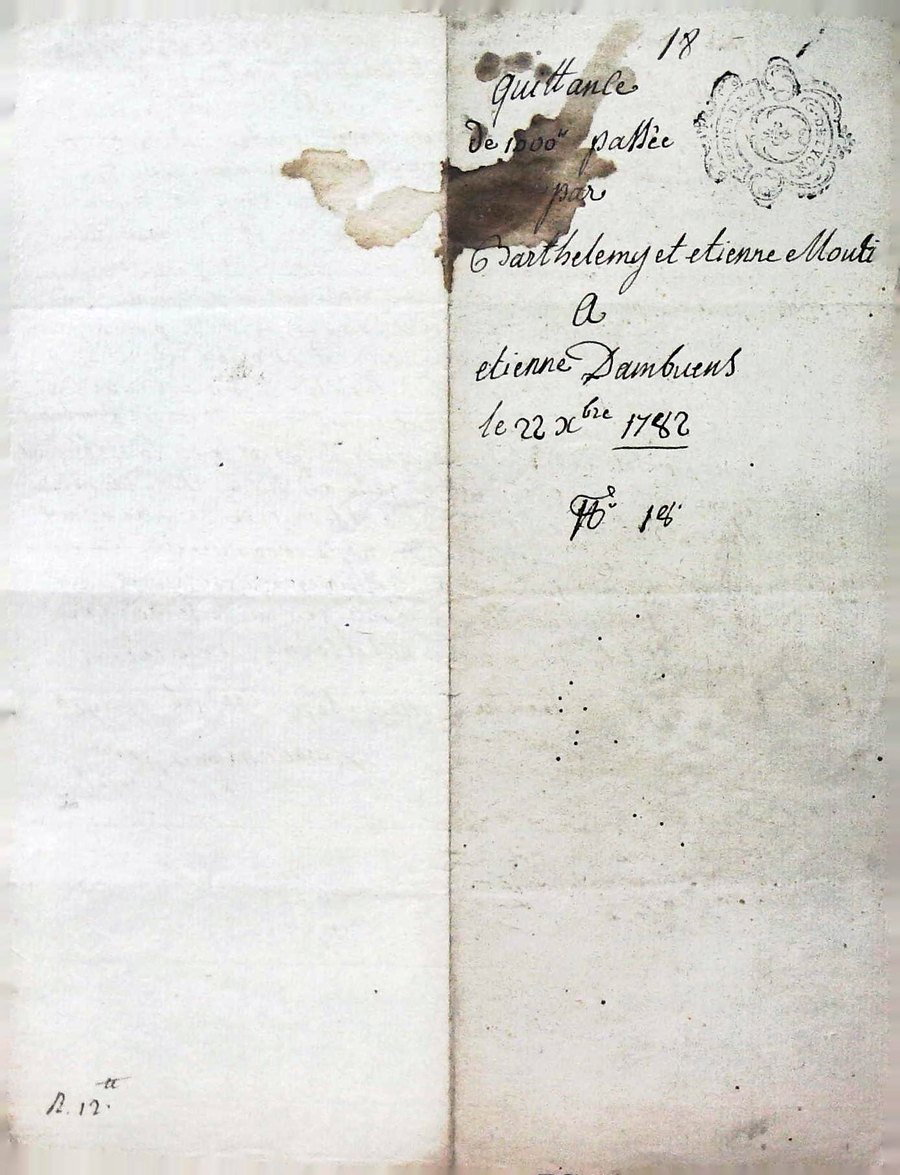 18
quittance
de 1000ᵗᵗ passée
par
Barthelemy et etienne Mouti
A
etienne Dambuens
le 22 xbre 1782
No 18
R. 12.ᵗᵗ